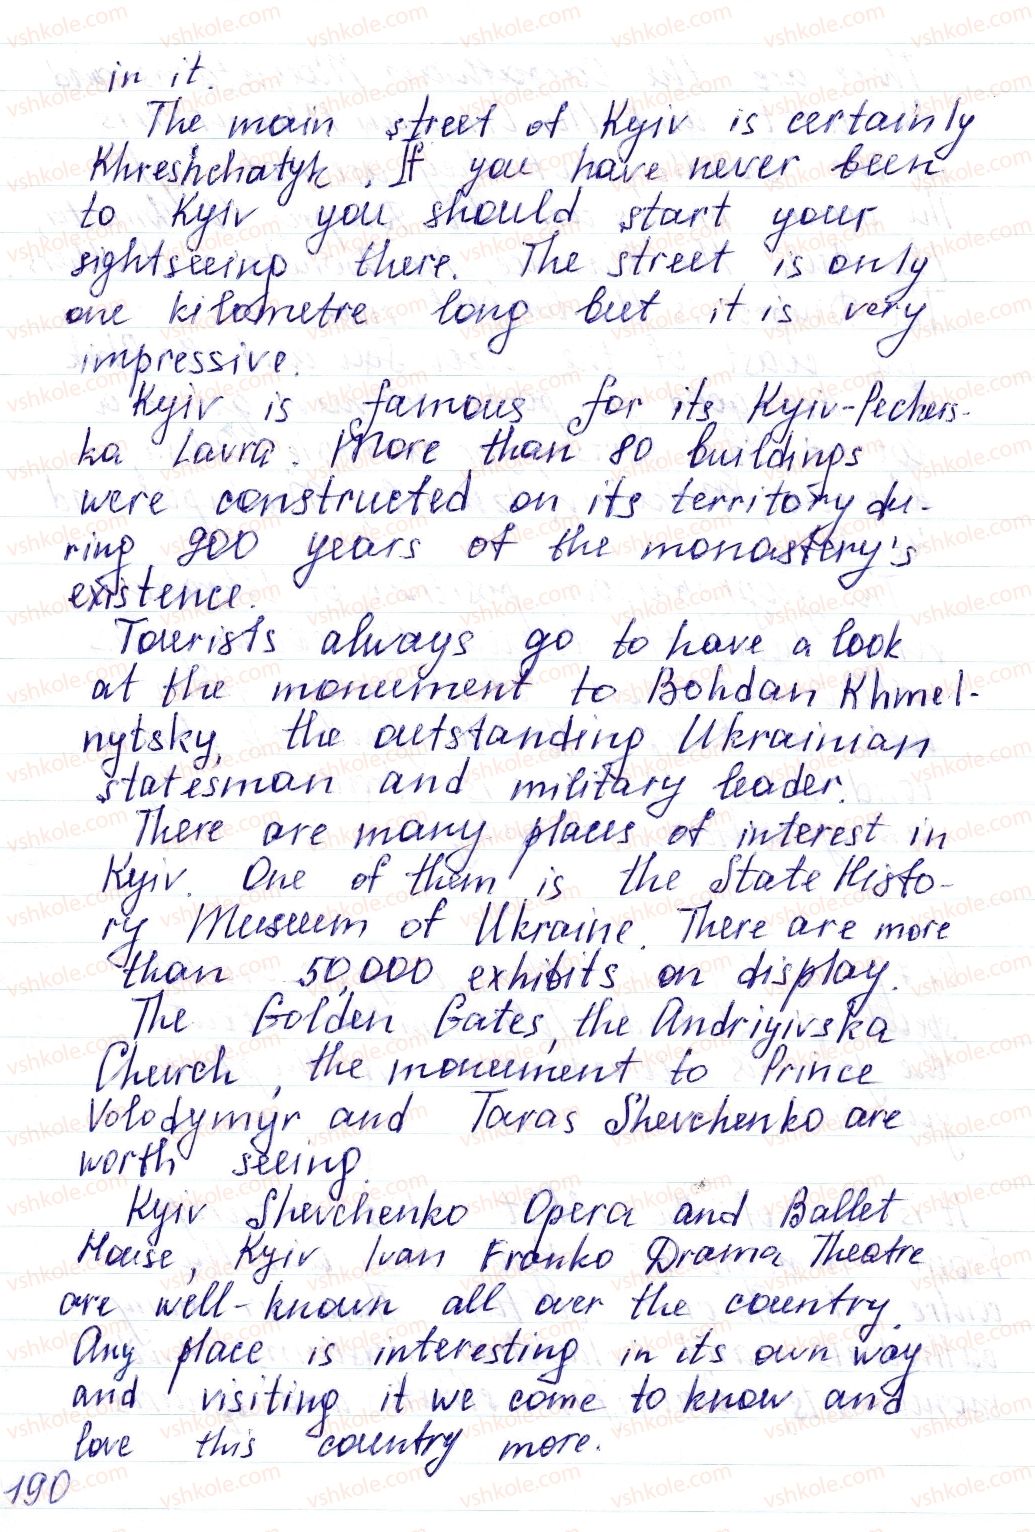 in it.
The main street of Kyiv is certainly
Khreshchatyk. If you have never been
to Kyiv you should start your
sightseeing there. The street is only
one kilometre long but it is very
impressive.
Kyiv is famous for its Kyiv-Pechers-
ka Lavra. More than 80 buildings
were constructed on its territory du-
ring 900 years of the monastery's
existence.
Tourists always go to have a look
at the monument to Bohdan Khmel-
nytsky, the outstanding Ukrainian
statesman and military leader.
There are many places of interest in
Kyiv. One of them is the State Histo-
ry Museum of Ukraine. There are more
than 50,000 exhibits on display.
The Golden Gates, the Andriyivska
Church, the monument to Prince
Volodymyr and Taras Shevchenko are
worth seeing.
Kyiv Shevchenko Opera and Ballet
House, Kyiv Ivan Franko Drama Theatre
are well-known all over the country.
Any place is interesting in its own way
and visiting it we come to know and
love this country more.
190
vshkole.com